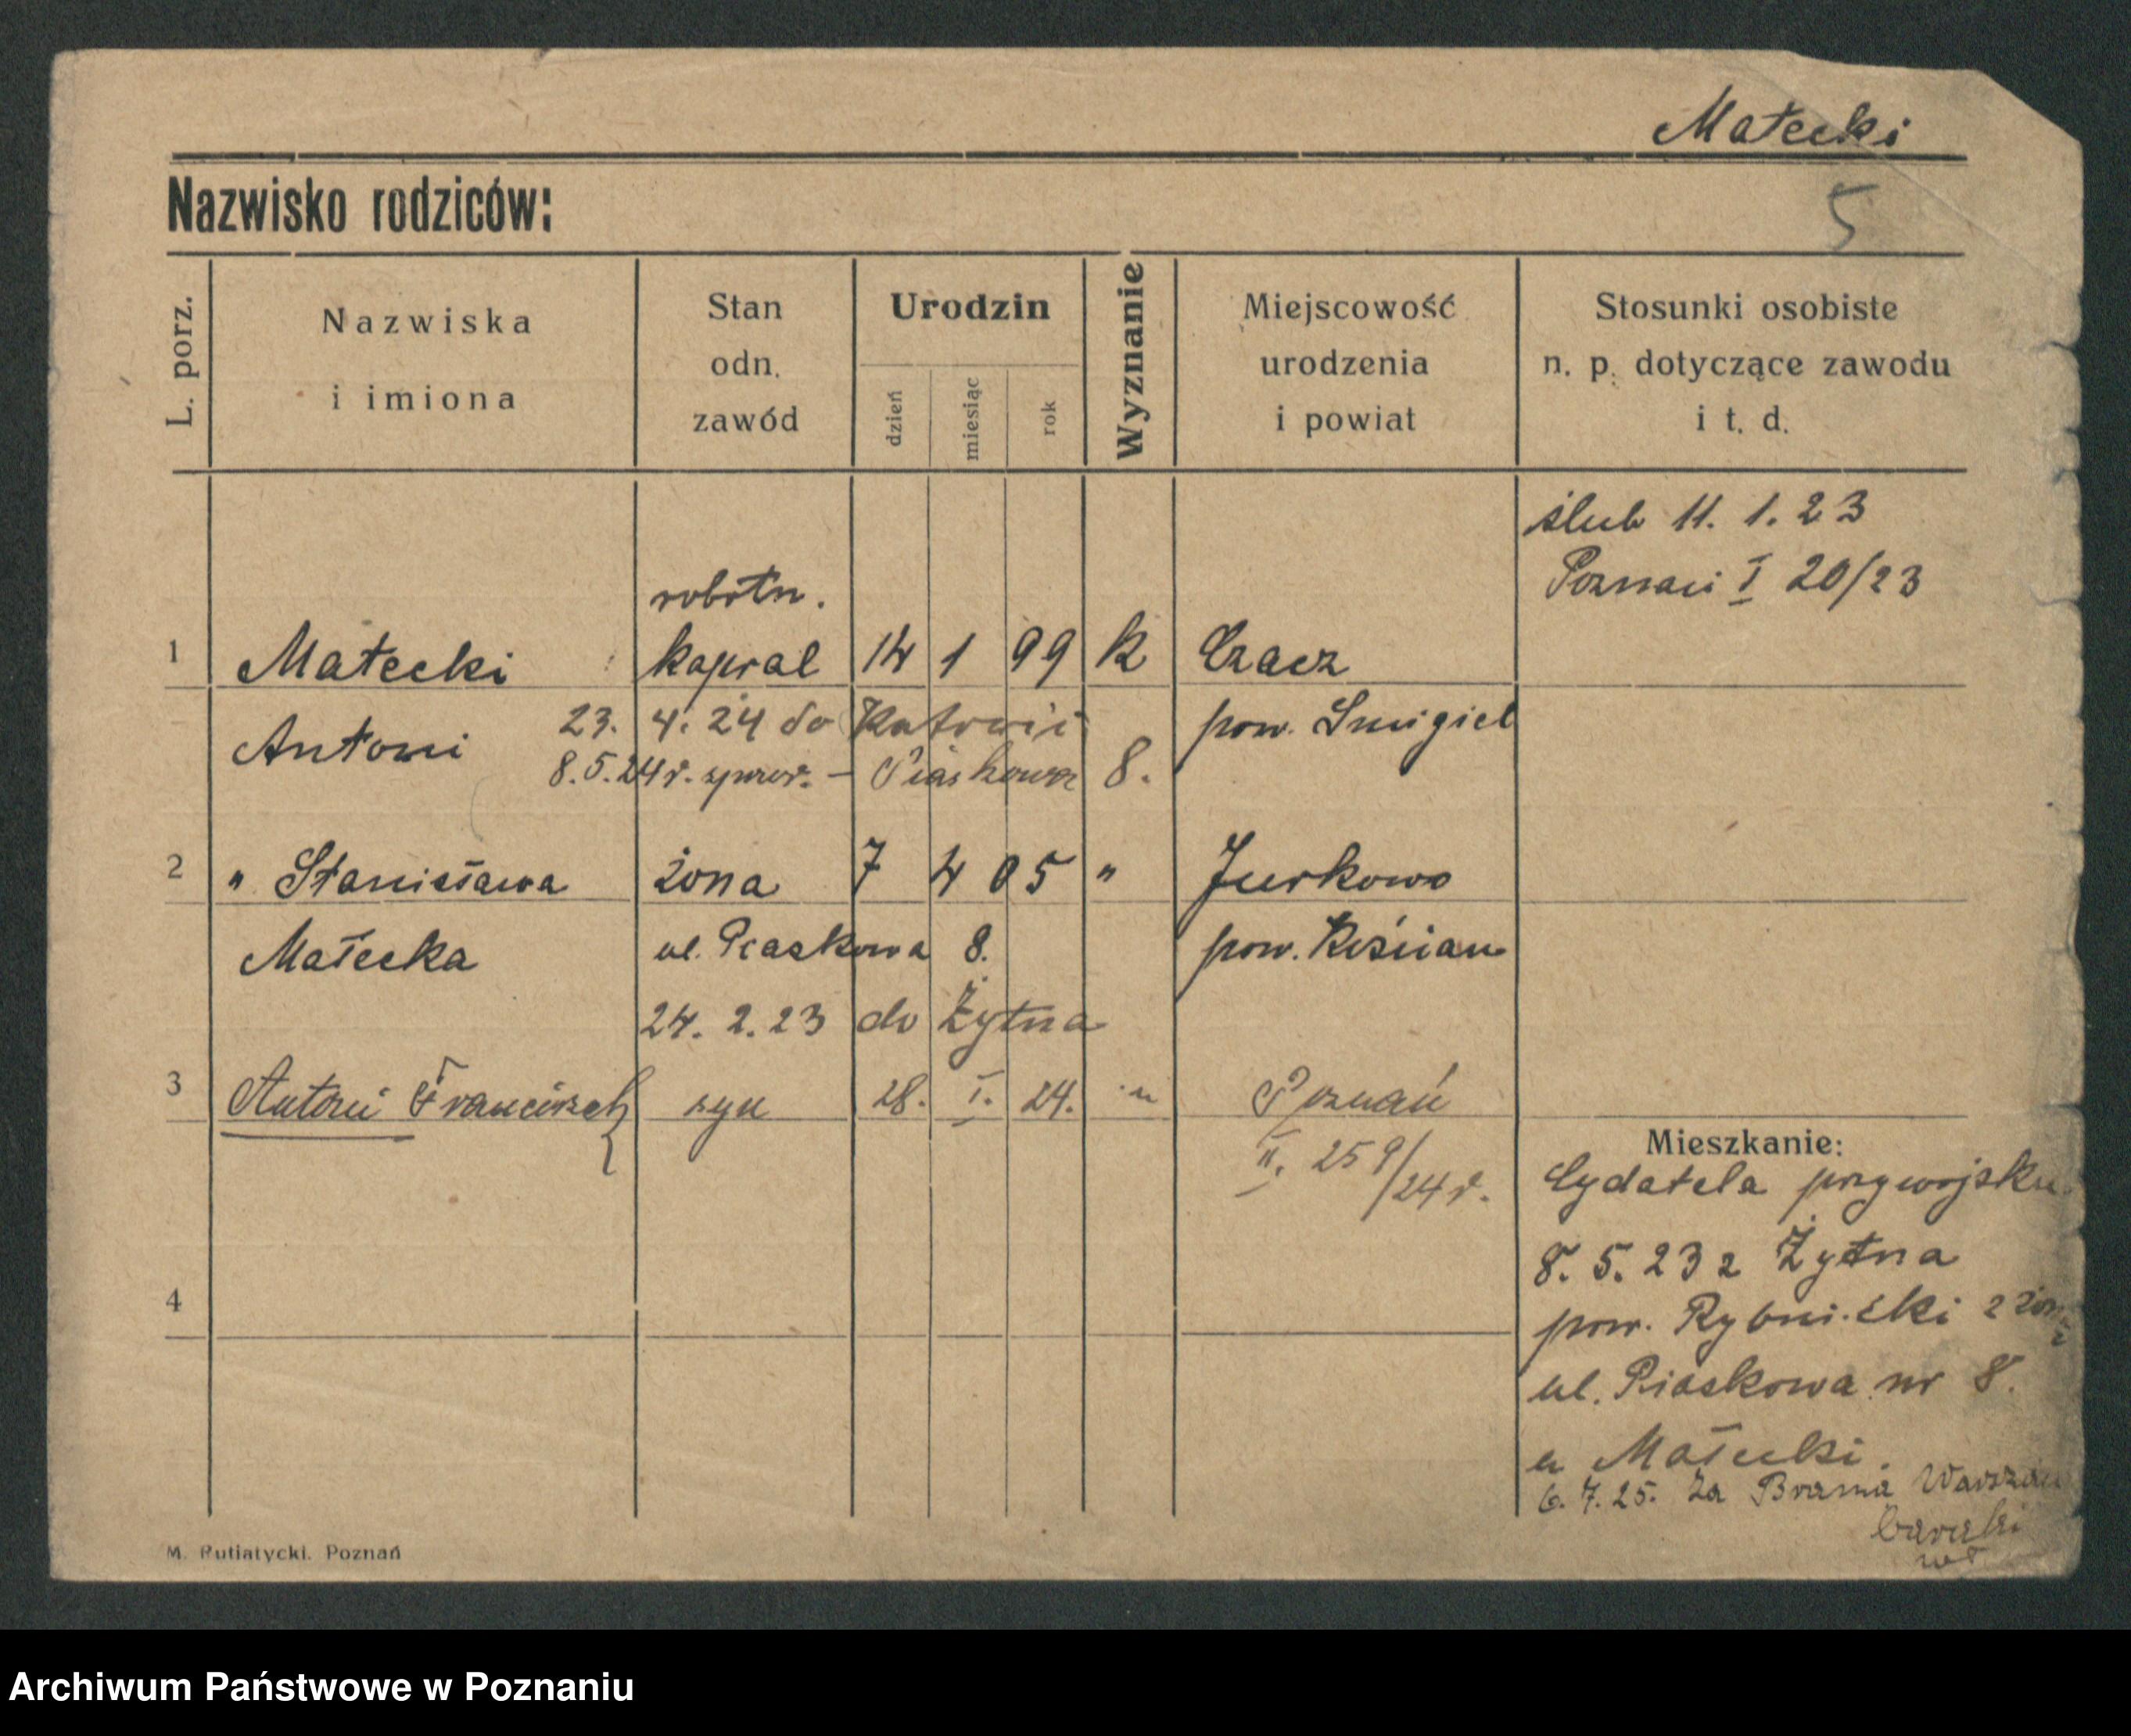 Małecki
Nazwisko rodziców:
5
L. porz.
Nazwiska
i imiona
Stan
odn.
zawód
Urodzin
dzień
miesiąc
rok
Wyznanie
Miejscowość
urodzenia
i powiat
Stosunki osobiste
n. p. dotyczące zawodu
i t. d.
ślub 11. 1. 23
Poznań I 20/23
robotn.
1 Małecki kapral 14 1 99 k Czacz
Antoni
pow. Śmigiel
23. 4. 24 do Katowic
8. 5. 24 r. sprow. – Piaskowa 8.
2 " Stanisława żona 7 4 05 " Jurkowo
Małecka ul. Piaskowa 8. pow. Kościan
24. 2. 23 do Żytna
3 Antoni Franciszek syn 28. I. 24. " Poznań
II. 259/24 r.
Mieszkanie:
Cydatela przy wojsku
8. 5. 23 z Żytna
pow. Rybnicki z żoną
ul. Piaskowa nr 8.
u Małecki.
6. 7. 25. Za Bramą
4
M. Putiatycki. Poznań
Archiwum Państwowe w Poznaniu